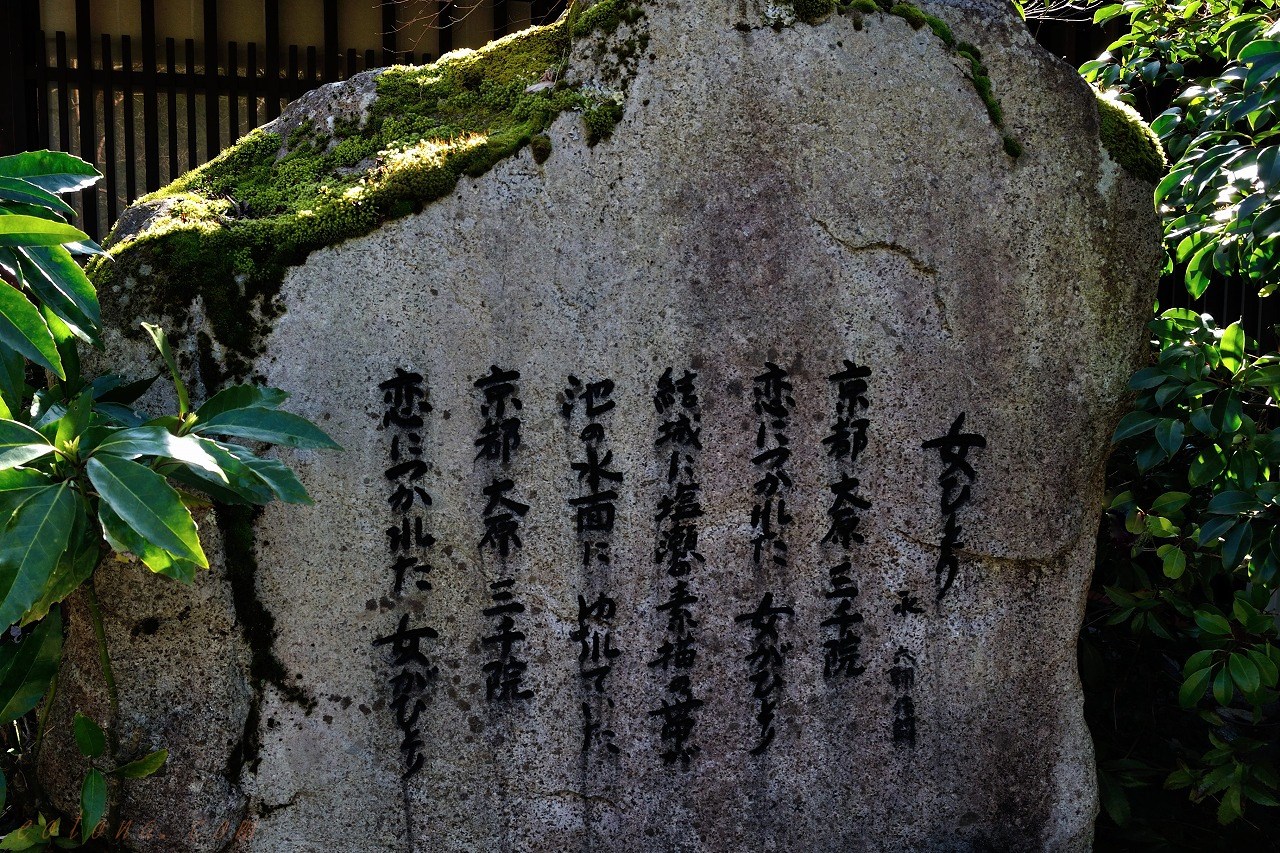 女ひとり
永 六輔
京都 大原 三千院
恋につかれた 女がひとり
結城に塩瀬の素描の帯が
池の水面に ゆれていた
京都 大原 三千院
恋につかれた 女がひとり